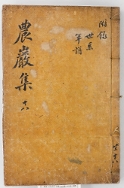 附錄
世系
年譜
農巖集